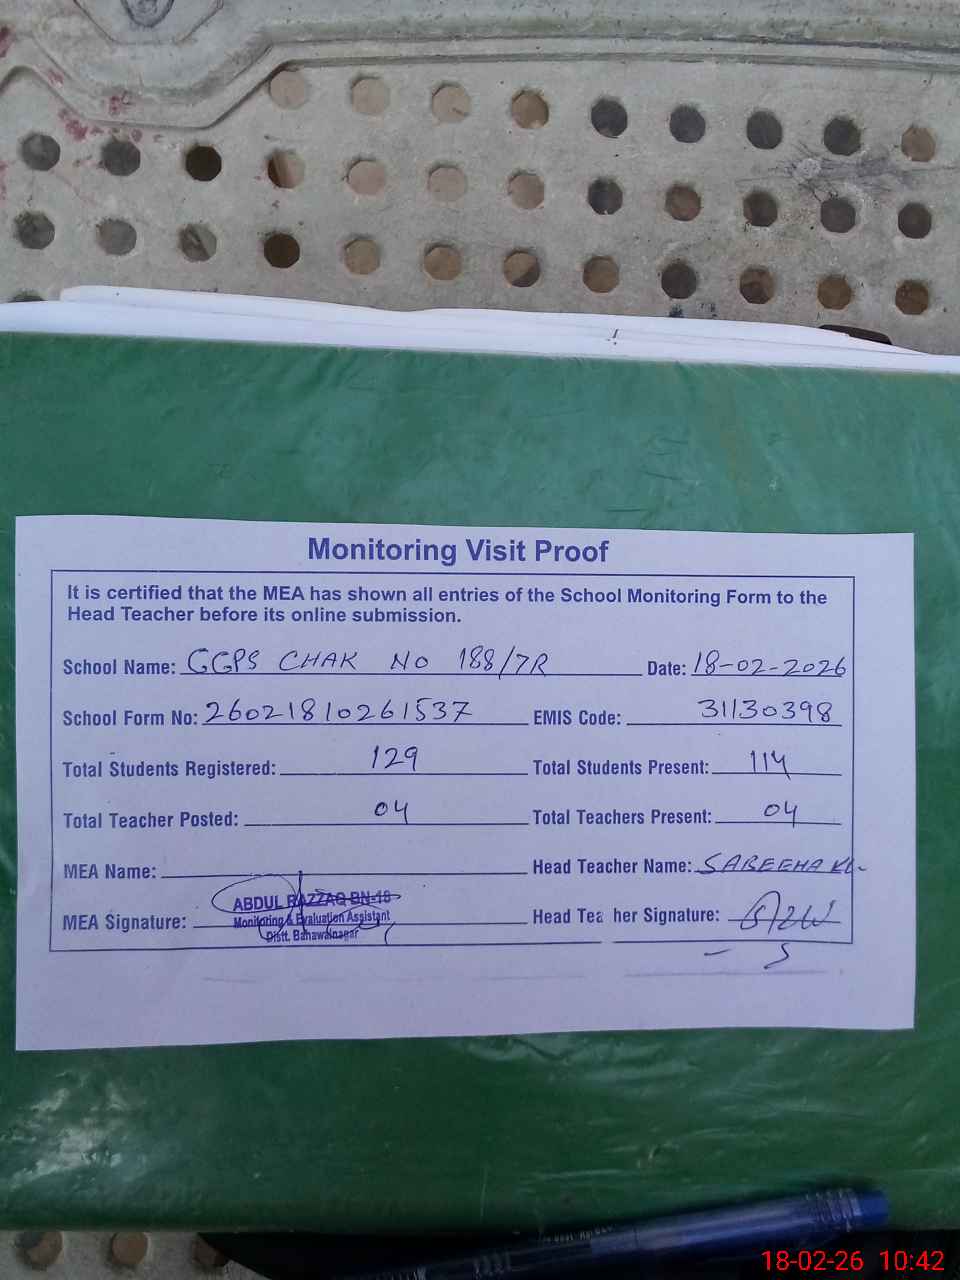 Monitoring Visit Proof
It is certified that the MEA has shown all entries of the School Monitoring Form to the
Head Teacher before its online submission.
School Name: GGPS CHAK NO 188/7R Date: 18-02-2026
School Form No: 26021810261537 EMIS Code: 31130398
Total Students Registered: 129 Total Students Present: 114
Total Teacher Posted: 04 Total Teachers Present: 04
MEA Name: Head Teacher Name: SABEEHA
MEA Signature: Head Tea her Signature:
ABDUL RAZZAQ BN-18
Monitoring & Evaluation Assistant
Distt. Bahawalnagar
18-02-26 10:42